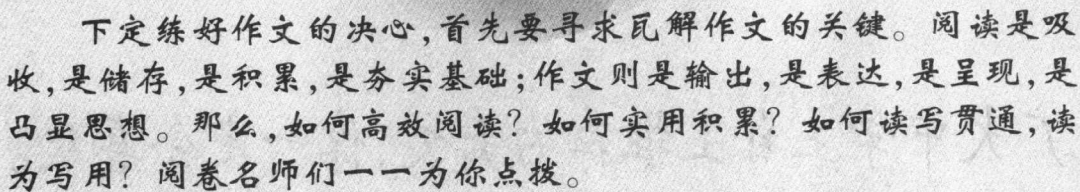 下定练好作文的决心,首先要寻求瓦解作文的关键。阅读是吸
收,是储存,是积累,是夯实基础;作文则是输出,是表达,是呈现,是
凸显思想。那么,如何高效阅读?如何实用积累?如何读写贯通,读
为写用?阅卷名师们一一为你点拨。